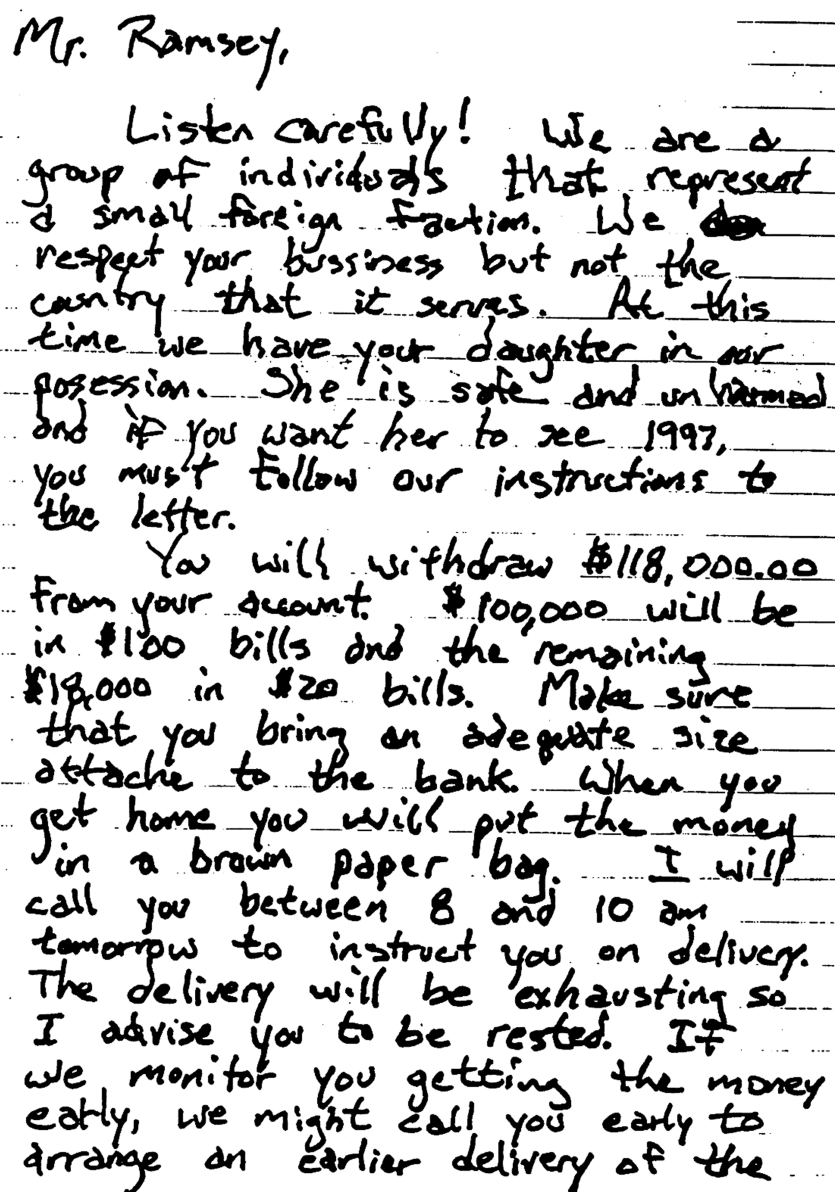 Mr. Ramsey,
Listen carefully! We are a
group of individuals that represent
a small foreign faction. We
respect your bussiness but not the
country that it serves. At this
time we have your daughter in our
posession. She is safe and unharmed
and if you want her to see 1997,
you must follow our instructions to
the letter.
You will withdraw $118,000.00
from your account. $100,000 will be
in $100 bills and the remaining
$18,000 in $20 bills. Make sure
that you bring an adequate size
attache to the bank. When you
get home you will put the money
in a brown paper bag. I will
call you between 8 and 10 am
tomorrow to instruct you on delivery.
The delivery will be exhausting so
I advise you to be rested. If
we monitor you getting the money
early, we might call you early to
arrange an earlier delivery of the